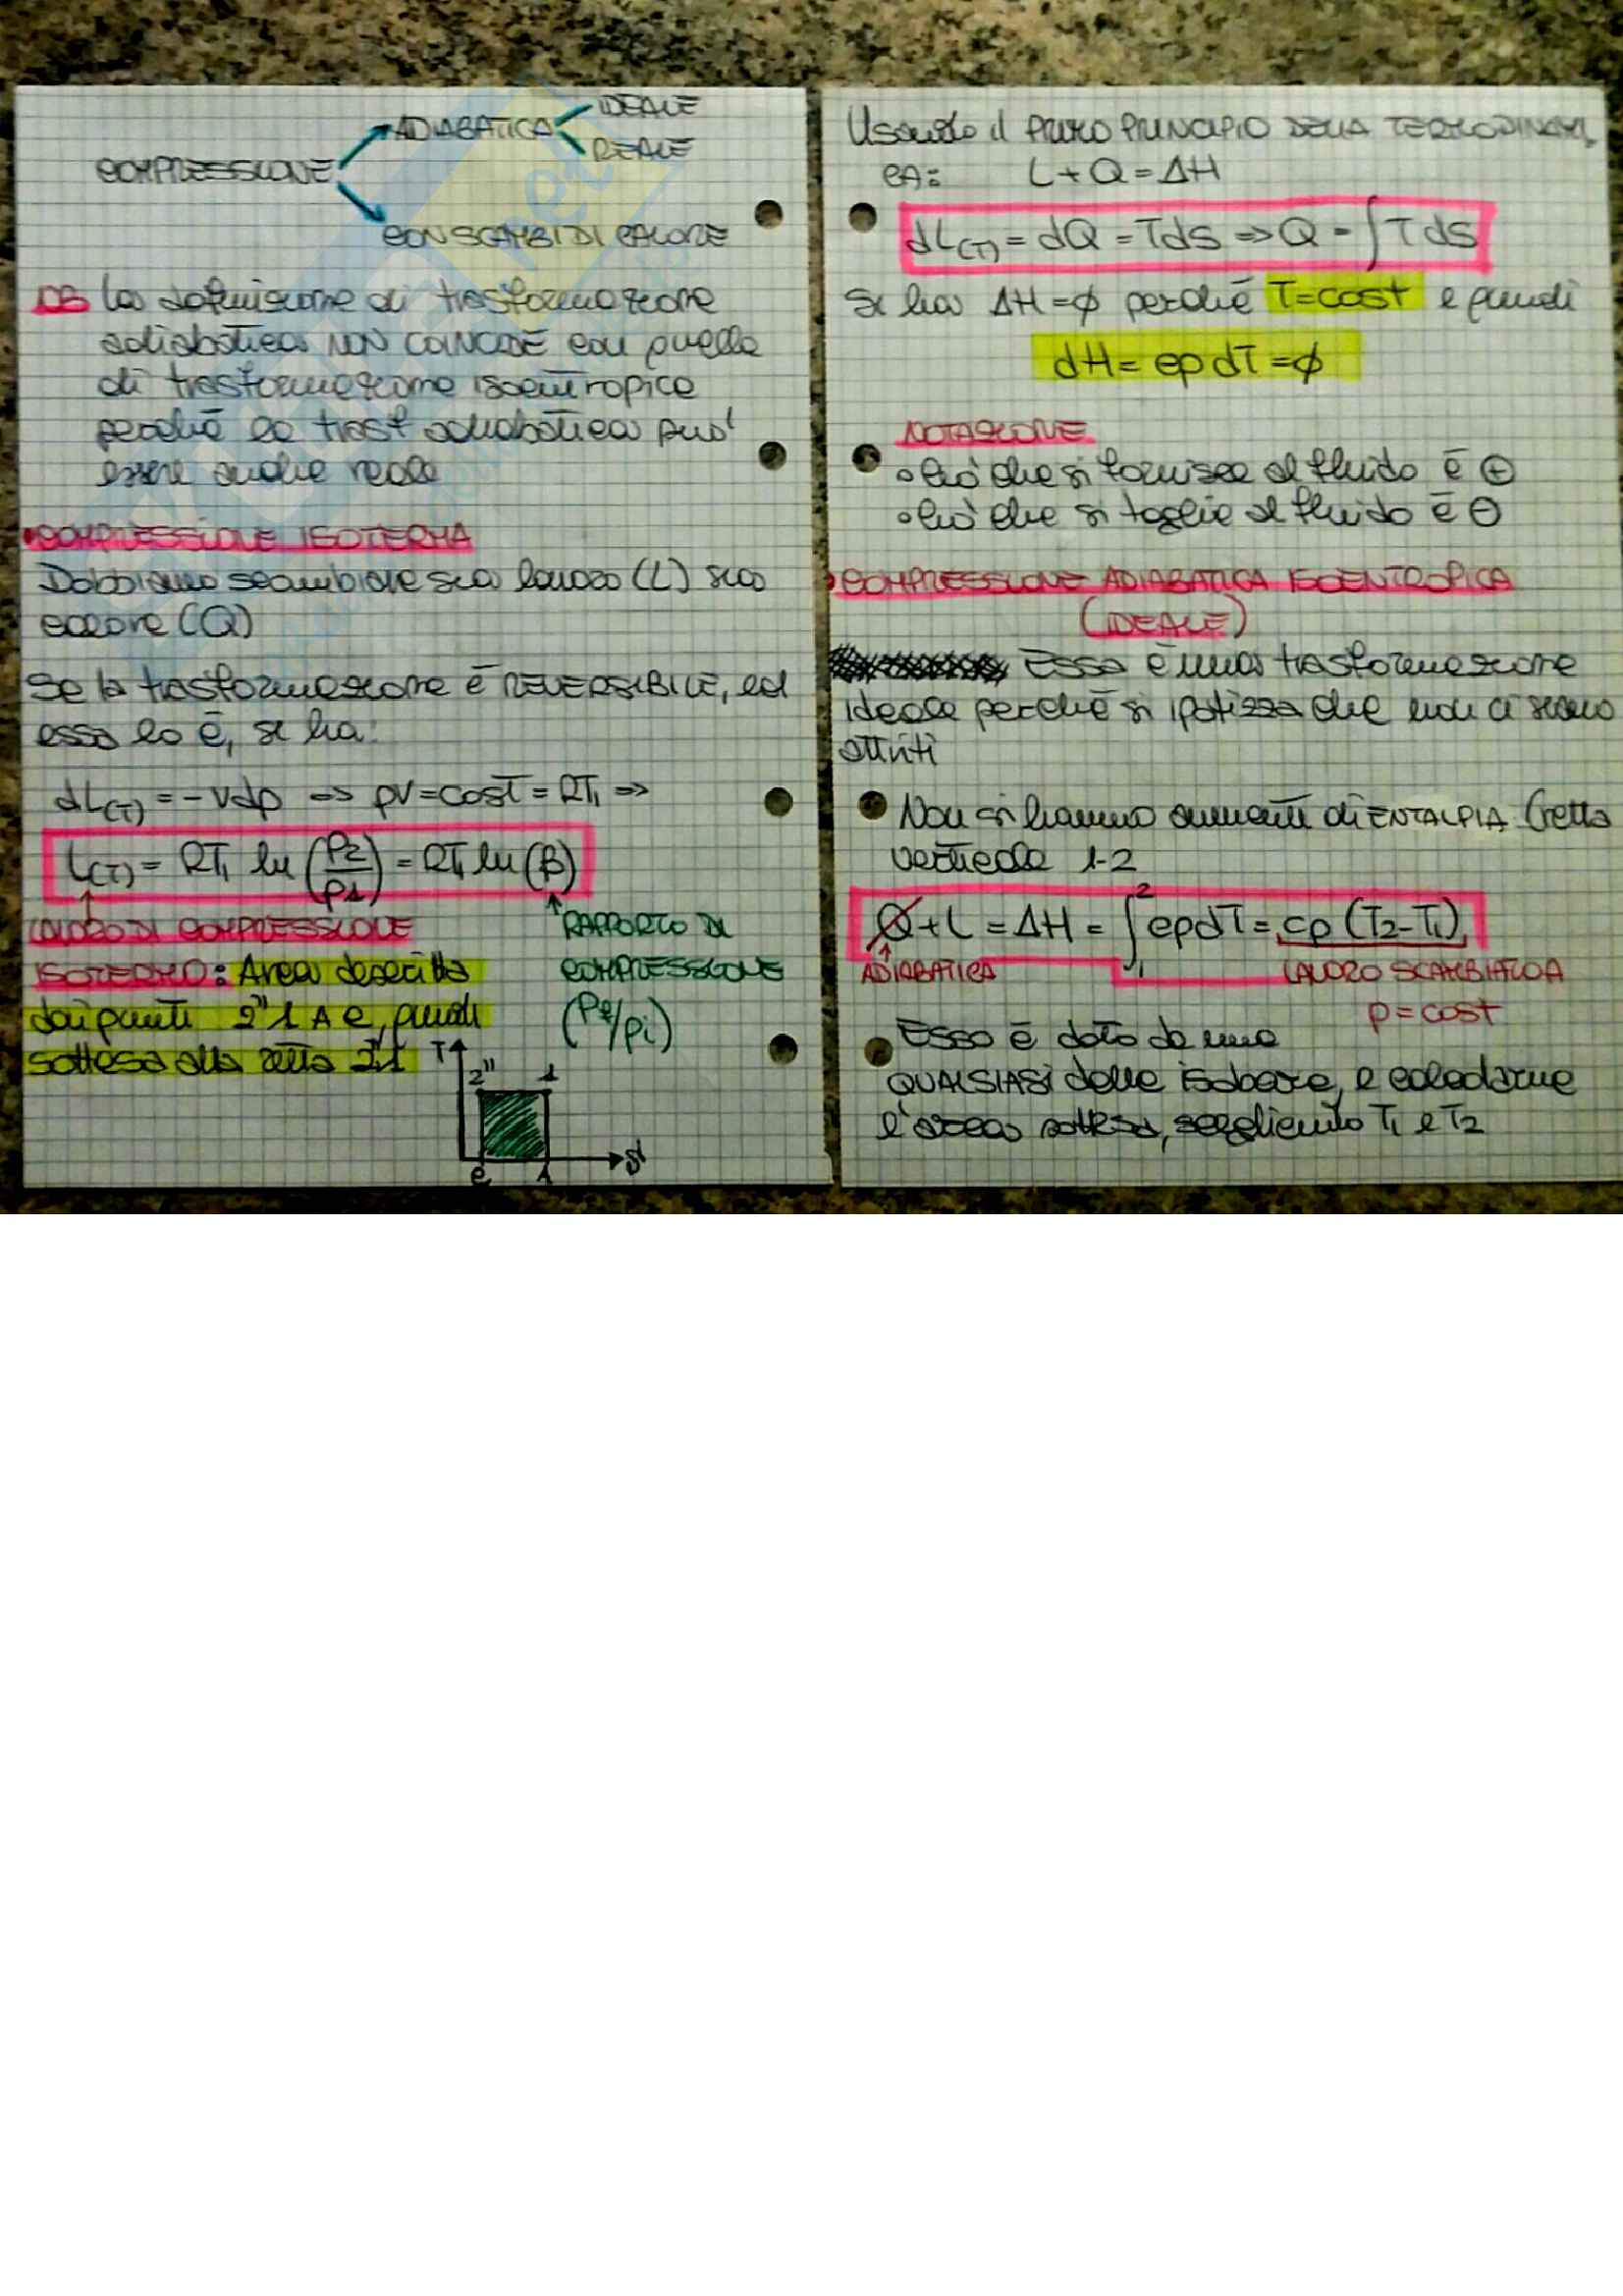 COMPRESSIONE
ADIABATICA
IDEALE
REALE
CON SCAMBI DI CALORE
OB La definizione di trasformazione
adiabatica NON COINCIDE con quella
di trasformazione isoentropica
perché la trasf adiabatica può
essere anche reale
• COMPRESSIONE ISOTERMA
Dobbiamo scambiare sia lavoro (L) sia
calore (Q)
Se la trasformazione è REVERSIBILE, ed
essa lo è, si ha:
dL(T) = -vdp => pV=cost = RT1 =>
L(T) = RT1 ln (p2/p1) = RT1 ln (β)
LAVORO DI COMPRESSIONE
ISOTERMO: Area descritta
dai punti 2" 1 A e, quindi
sottesa alla retta 2"1
RAPPORTO DI
COMPRESSIONE
(Pe/pi)
T
2" 1
e 1 S
Usando il PRIMO PRINCIPIO DELLA TERMODINAMI
CA: L+Q=ΔH
dL(T) = dQ = Tds => Q = ∫Tds
Si ha ΔH=ϕ perché T=cost e quindi
dH= cp dT =ϕ
NOTAZIONE
• Ciò che si fornisce al fluido è ⊕
• Ciò che si toglie al fluido è ⊖
• COMPRESSIONE ADIABATICA ISOENTROPICA
(IDEALE)
Essa è una trasformazione
ideale perché si ipotizza che non ci siano
attriti
Non si hanno aumenti di ENTALPIA (retta
verticale 1-2
Q+L = ΔH = ∫₁² cpdT = cp (T2-T1)
ADIABATICA
LAVORO SCAMBIATO A
p=cost
Esso è dato da una
QUALSIASI delle isobare, e calcolarne
l'area sottesa, scegliendo T1 e T2